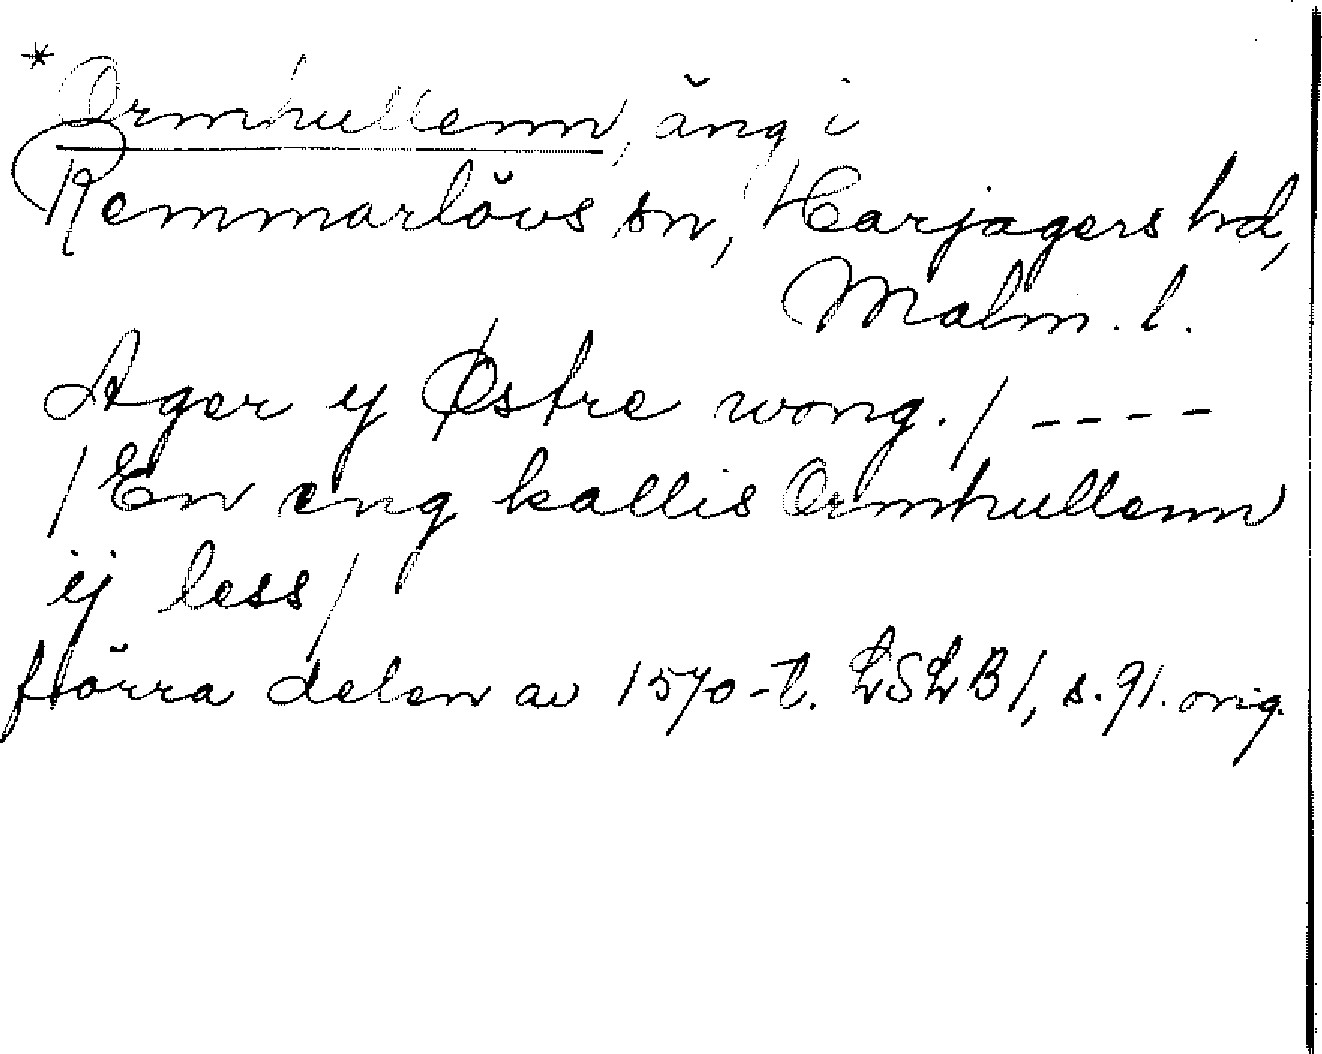 *Ormhullenn, äng i
Remmarlövs sn, Harjagers hd,
Malm. l.
Ager y Østre wong. / ----
/ En eng kallis Ormhullenn
ij less /
förra delen av 1570-t. LSLB 1, s. 91. orig.